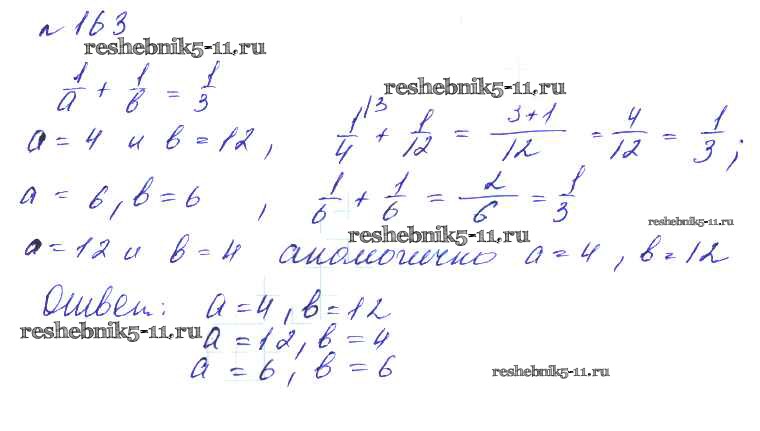 № 163
reshebnik5-11.ru
1/a + 1/в = 1/3
reshebnik5-11.ru
а = 4 и в = 12, 1/4|3 + 1/12 = (3+1)/12 = 4/12 = 1/3;
а = 6, в = 6, 1/6 + 1/6 = 2/6 = 1/3
reshebnik5-11.ru
reshebnik5-11.ru
а = 12 и в = 4 аналогично а = 4, в = 12
Ответ: а = 4, в = 12
reshebnik5-11.ru
а = 12, в = 4
а = 6, в = 6
reshebnik5-11.ru